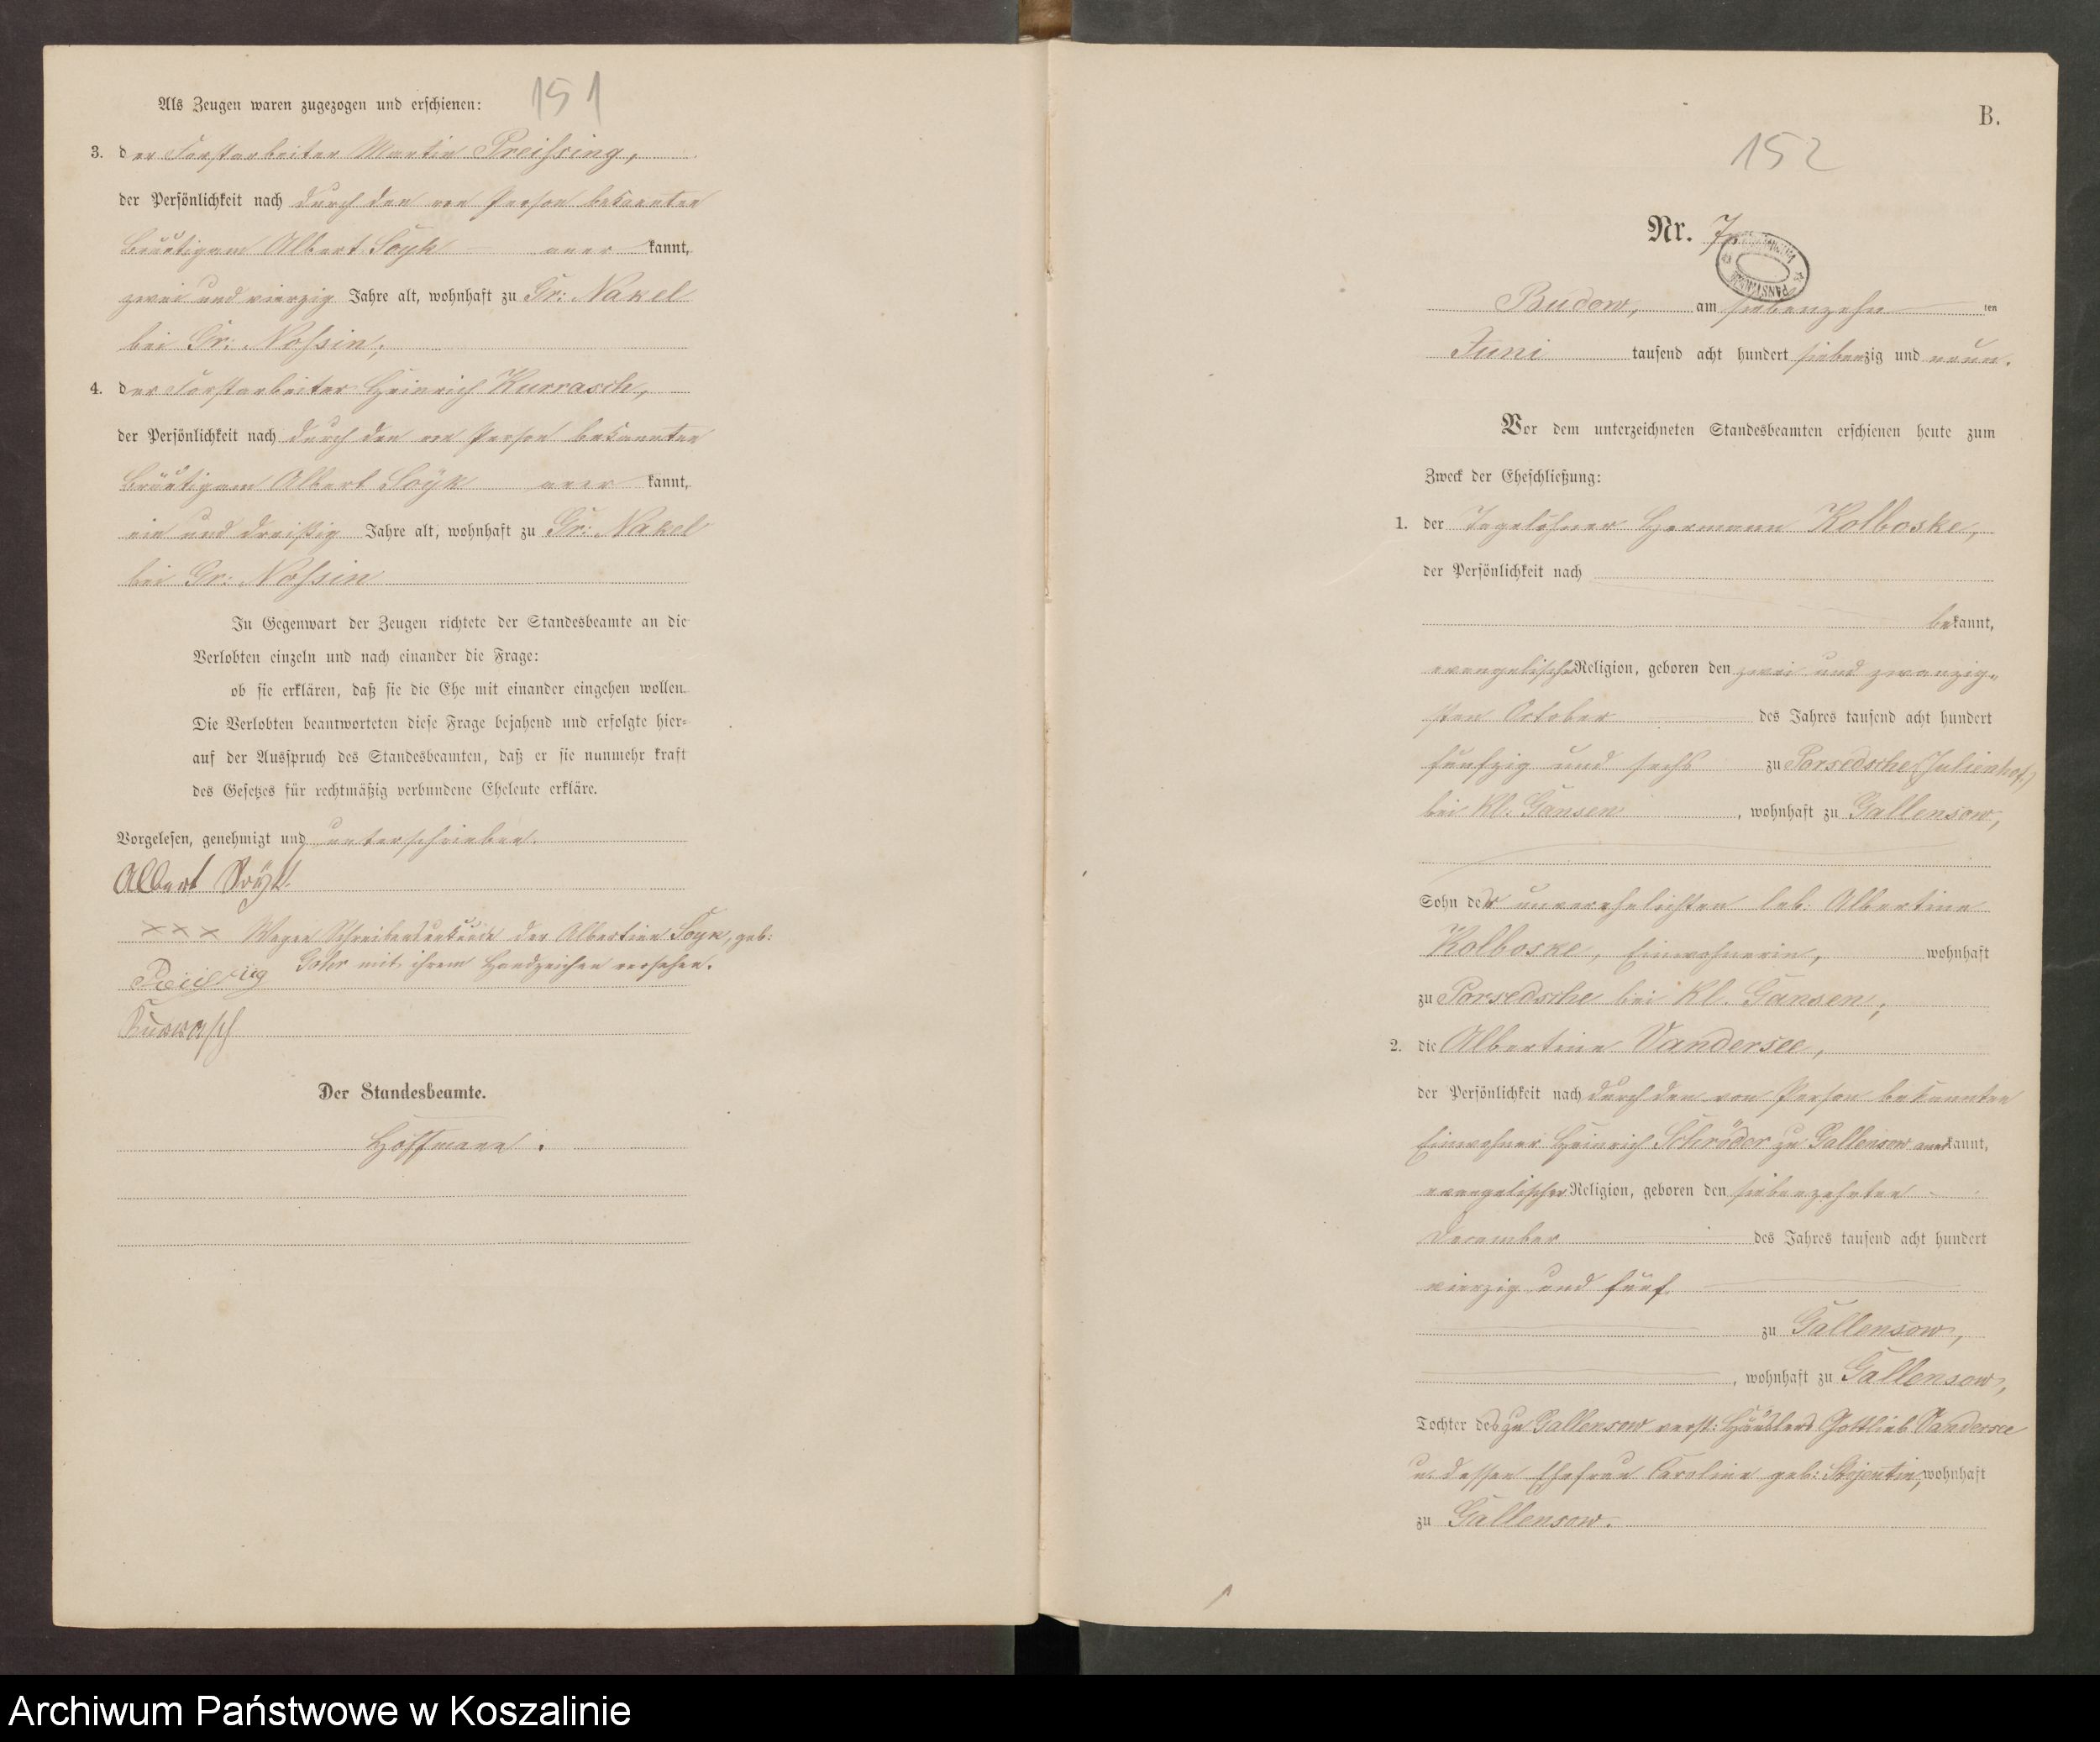 151
Als Zeugen waren zugezogen und erschienen:
3. der Forstarbeiter Martin Preissing,
der Persönlichkeit nach durch den von Person bekannten
Bräutigam Albert Soyk aner kannt,
zwei und vierzig Jahre alt, wohnhaft zu Gr: Nakel
bei Gr: Nossin;
4. der Forstarbeiter Heinrich Kurrasch,
der Persönlichkeit nach durch den von Person bekannten
Bräutigam Albert Soyk aner kannt,
ein und dreißig Jahre alt, wohnhaft zu Gr: Nakel
bei Gr: Nossin
In Gegenwart der Zeugen richtete der Standesbeamte an die
Verlobten einzeln und nach einander die Frage:
ob sie erklären, daß sie die Ehe mit einander eingehen wollen.
Die Verlobten beantworteten diese Frage bejahend und erfolgte hier-
auf der Ausspruch des Standesbeamten, daß er sie nunmehr kraft
des Gesetzes für rechtmäßig verbundene Eheleute erkläre.
Vorgelesen, genehmigt und unterschrieben.
Albert Söyk.
××× Wegen Schreibensunkunde der Albertine Soyk, geb:
Gohr mit ihrem Handzeichen versehen.
Preissing
Kurrasch
Der Standesbeamte.
Hoffmann.
B.
152
Nr. 7.
Budow, am siebenzehn ten
Juni tausend acht hundert siebenzig und neun.
Vor dem unterzeichneten Standesbeamten erschienen heute zum
Zweck der Eheschließung:
1. der Tagelöhner Hermann Kolboske,
der Persönlichkeit nach
bekannt,
evangelischer Religion, geboren den zwei und zwanzig-
sten October des Jahres tausend acht hundert
funfzig und sechs zu Porsedsche (Julienhof)
bei Kl. Gansen, wohnhaft zu Gallensow,
Sohn der unverehelichten leb: Albertine
Kolboske, Einwohnerin, wohnhaft
zu Porsedsche bei Kl. Gansen;
2. die Albertine Vandersee,
der Persönlichkeit nach durch den von Person bekannten
Einwohner Heinrich Schröder zu Gallensow anerkannt,
evangelischer Religion, geboren den siebenzehnten
December des Jahres tausend acht hundert
vierzig und fünf
zu Gallensow,
, wohnhaft zu Gallensow,
Tochter des zu Gallensow verst: Häuslers Gottlieb Vandersee
u. dessen Ehefrau Caroline geb: Stojentin, wohnhaft
zu Gallensow.
Archiwum Państwowe w Koszalinie